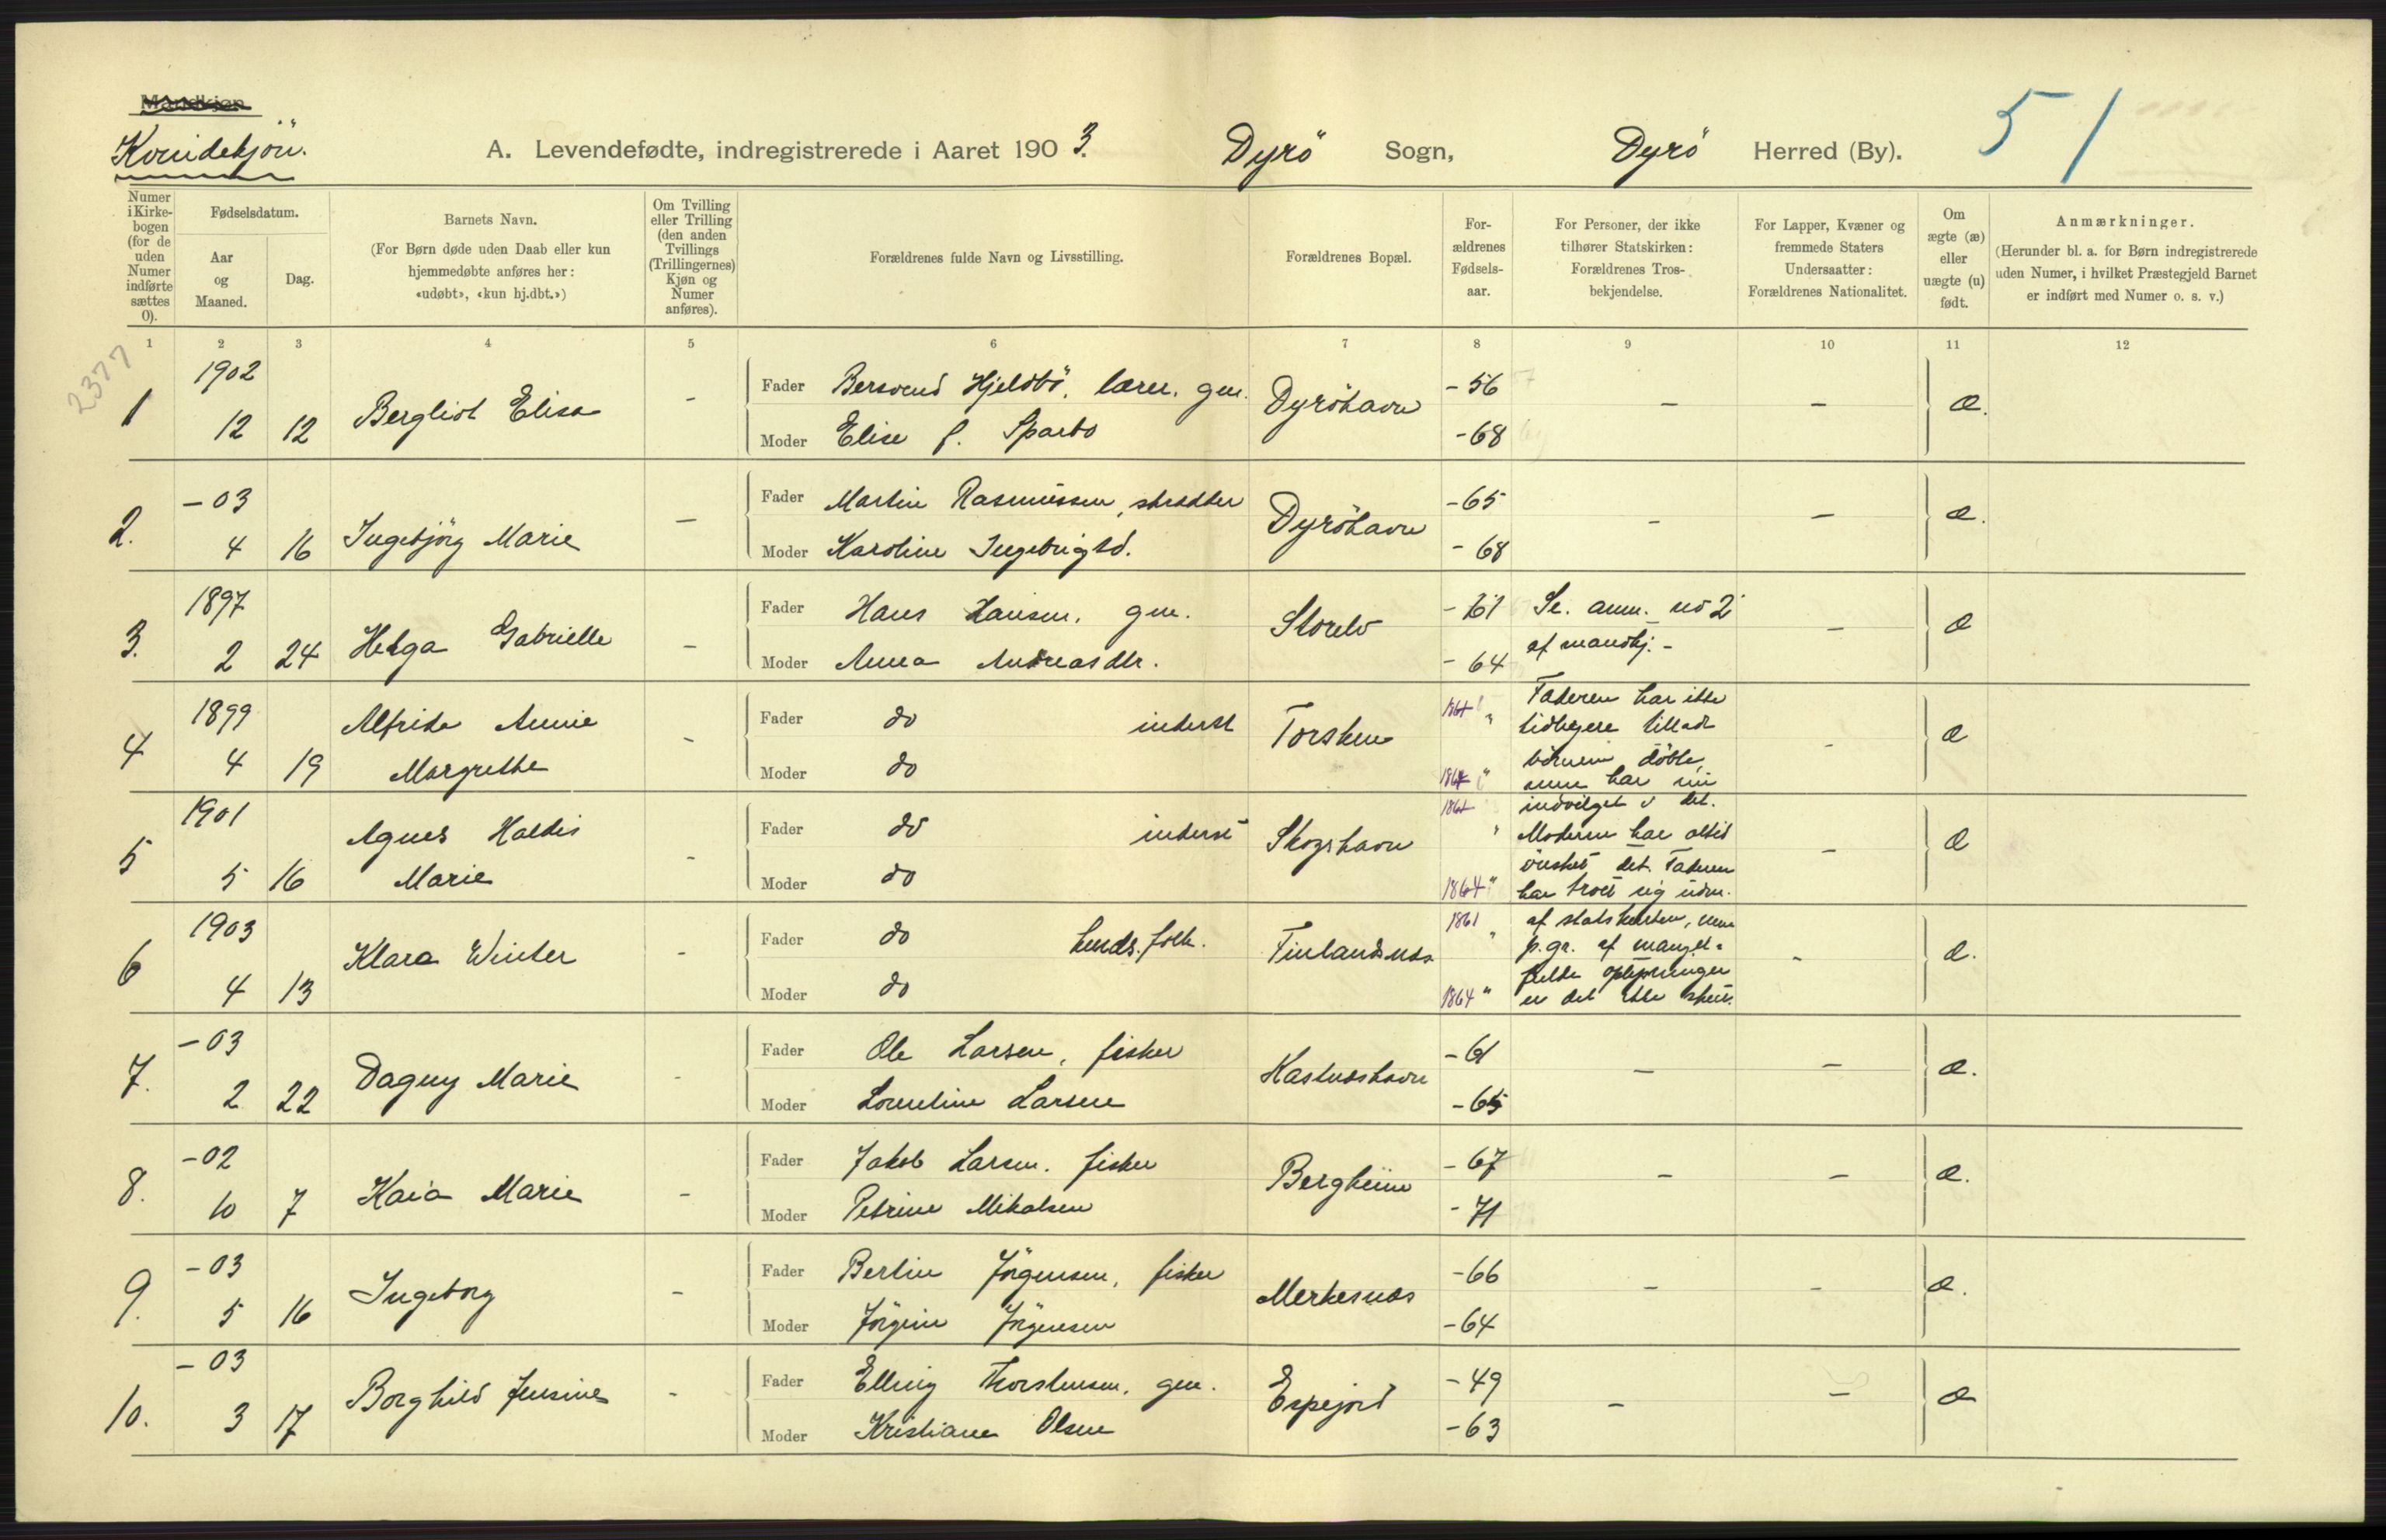 Mandkjøn
Kvindekjön.
A. Levendefødte, indregistrerede i Aaret 1903.
Dyrö Sogn, Dyrö Herred (By).
51
Numer i Kirke-bogen (for de uden Numer indførte sættes 0).
Fødselsdatum.
Aar og Maaned.
Dag.
Barnets Navn.
(For Børn døde uden Daab eller kun
hjemmedøbte anføres her:
«udøbt», «kun hj.dbt.»)
Om Tvilling
eller Trilling
(den anden
Tvillings
(Trillingernes)
Kjøn og
Numer
anføres).
Forældrenes fulde Navn og Livsstilling.
Forældrenes Bopæl.
For-
ældrenes
Fødsels-
aar.
For Personer, der ikke
tilhører Statskirken:
Forældrenes Tros-
bekjendelse.
For Lapper, Kvæner og
fremmede Staters
Undersaatter:
Forældrenes Nationalitet.
Om
ægte (æ)
eller
uægte (u)
født.
Anmærkninger.
(Herunder bl. a. for Børn indregistrerede
uden Numer, i hvilket Præstegjeld Barnet
er indført med Numer o. s. v.)
1 2 3 4 5 6 7 8 9 10 11 12
2377
1 1902 12 12 Bergliot Elisa -
Fader Bersvend Hjeldbö, lærer. gm. Dyröhavn - 56 - - æ.
Moder Elise f. Sparbo - 68
2. - 03 4 16 Ingebjörg Marie -
Fader Martin Rasmussen, skrædder Dyröhavn - 65 - - æ.
Moder Karoline Ingebrigtsd. - 68
3. 1897 2 24 Helga Gabrielle -
Fader Hans Hansen. gm. Storelv - 61 Se. anm. no 2 - æ
Moder Anna Andreasdtr. - 64 af mandkj. -
4 1899 4 19 Alfrida Annie Margrethe -
Fader do inderst Torsken 1861 " Faderen har ikke
tidligere tilladt
Moder do 1864 " börnene döbte,
men har nu
5 1901 5 16 Agnes Haldis Marie -
Fader do inderst Skogshavn 1861 " indvilget i det.
Moderen har altid
Moder do 1864 " önsket det. Faderen
har troet sig udm.
6 1903 4 13 Klara Winter -
Fader do husds. folk. Finlandsnæs 1861 " af statskirken, men
p. gr. af mangel-
Moder do 1864 " fulde oplysninger
er det ikke skeet.
7. - 03 2 22 Dagny Marie -
Fader Ole Larsen, fisker Kastnæshavn - 61 - - æ.
Moder Lorentine Larsen - 65
8. - 02 10 7 Kaia Marie -
Fader Jakob Larsen. fisker Bergheim - 67 - - æ.
Moder Petrine Mikalsen - 71
9. - 03 5 16 Ingeborg -
Fader Bertin Jörgensen, fisker Merkesnæs - 66 - - æ.
Moder Jörgine Jörgensen - 64
10. - 03 3 17 Borghild Jensine -
Fader Elling Thorstensen. gm. Espejord - 49 - - æ
Moder Kristiane Olsen - 63